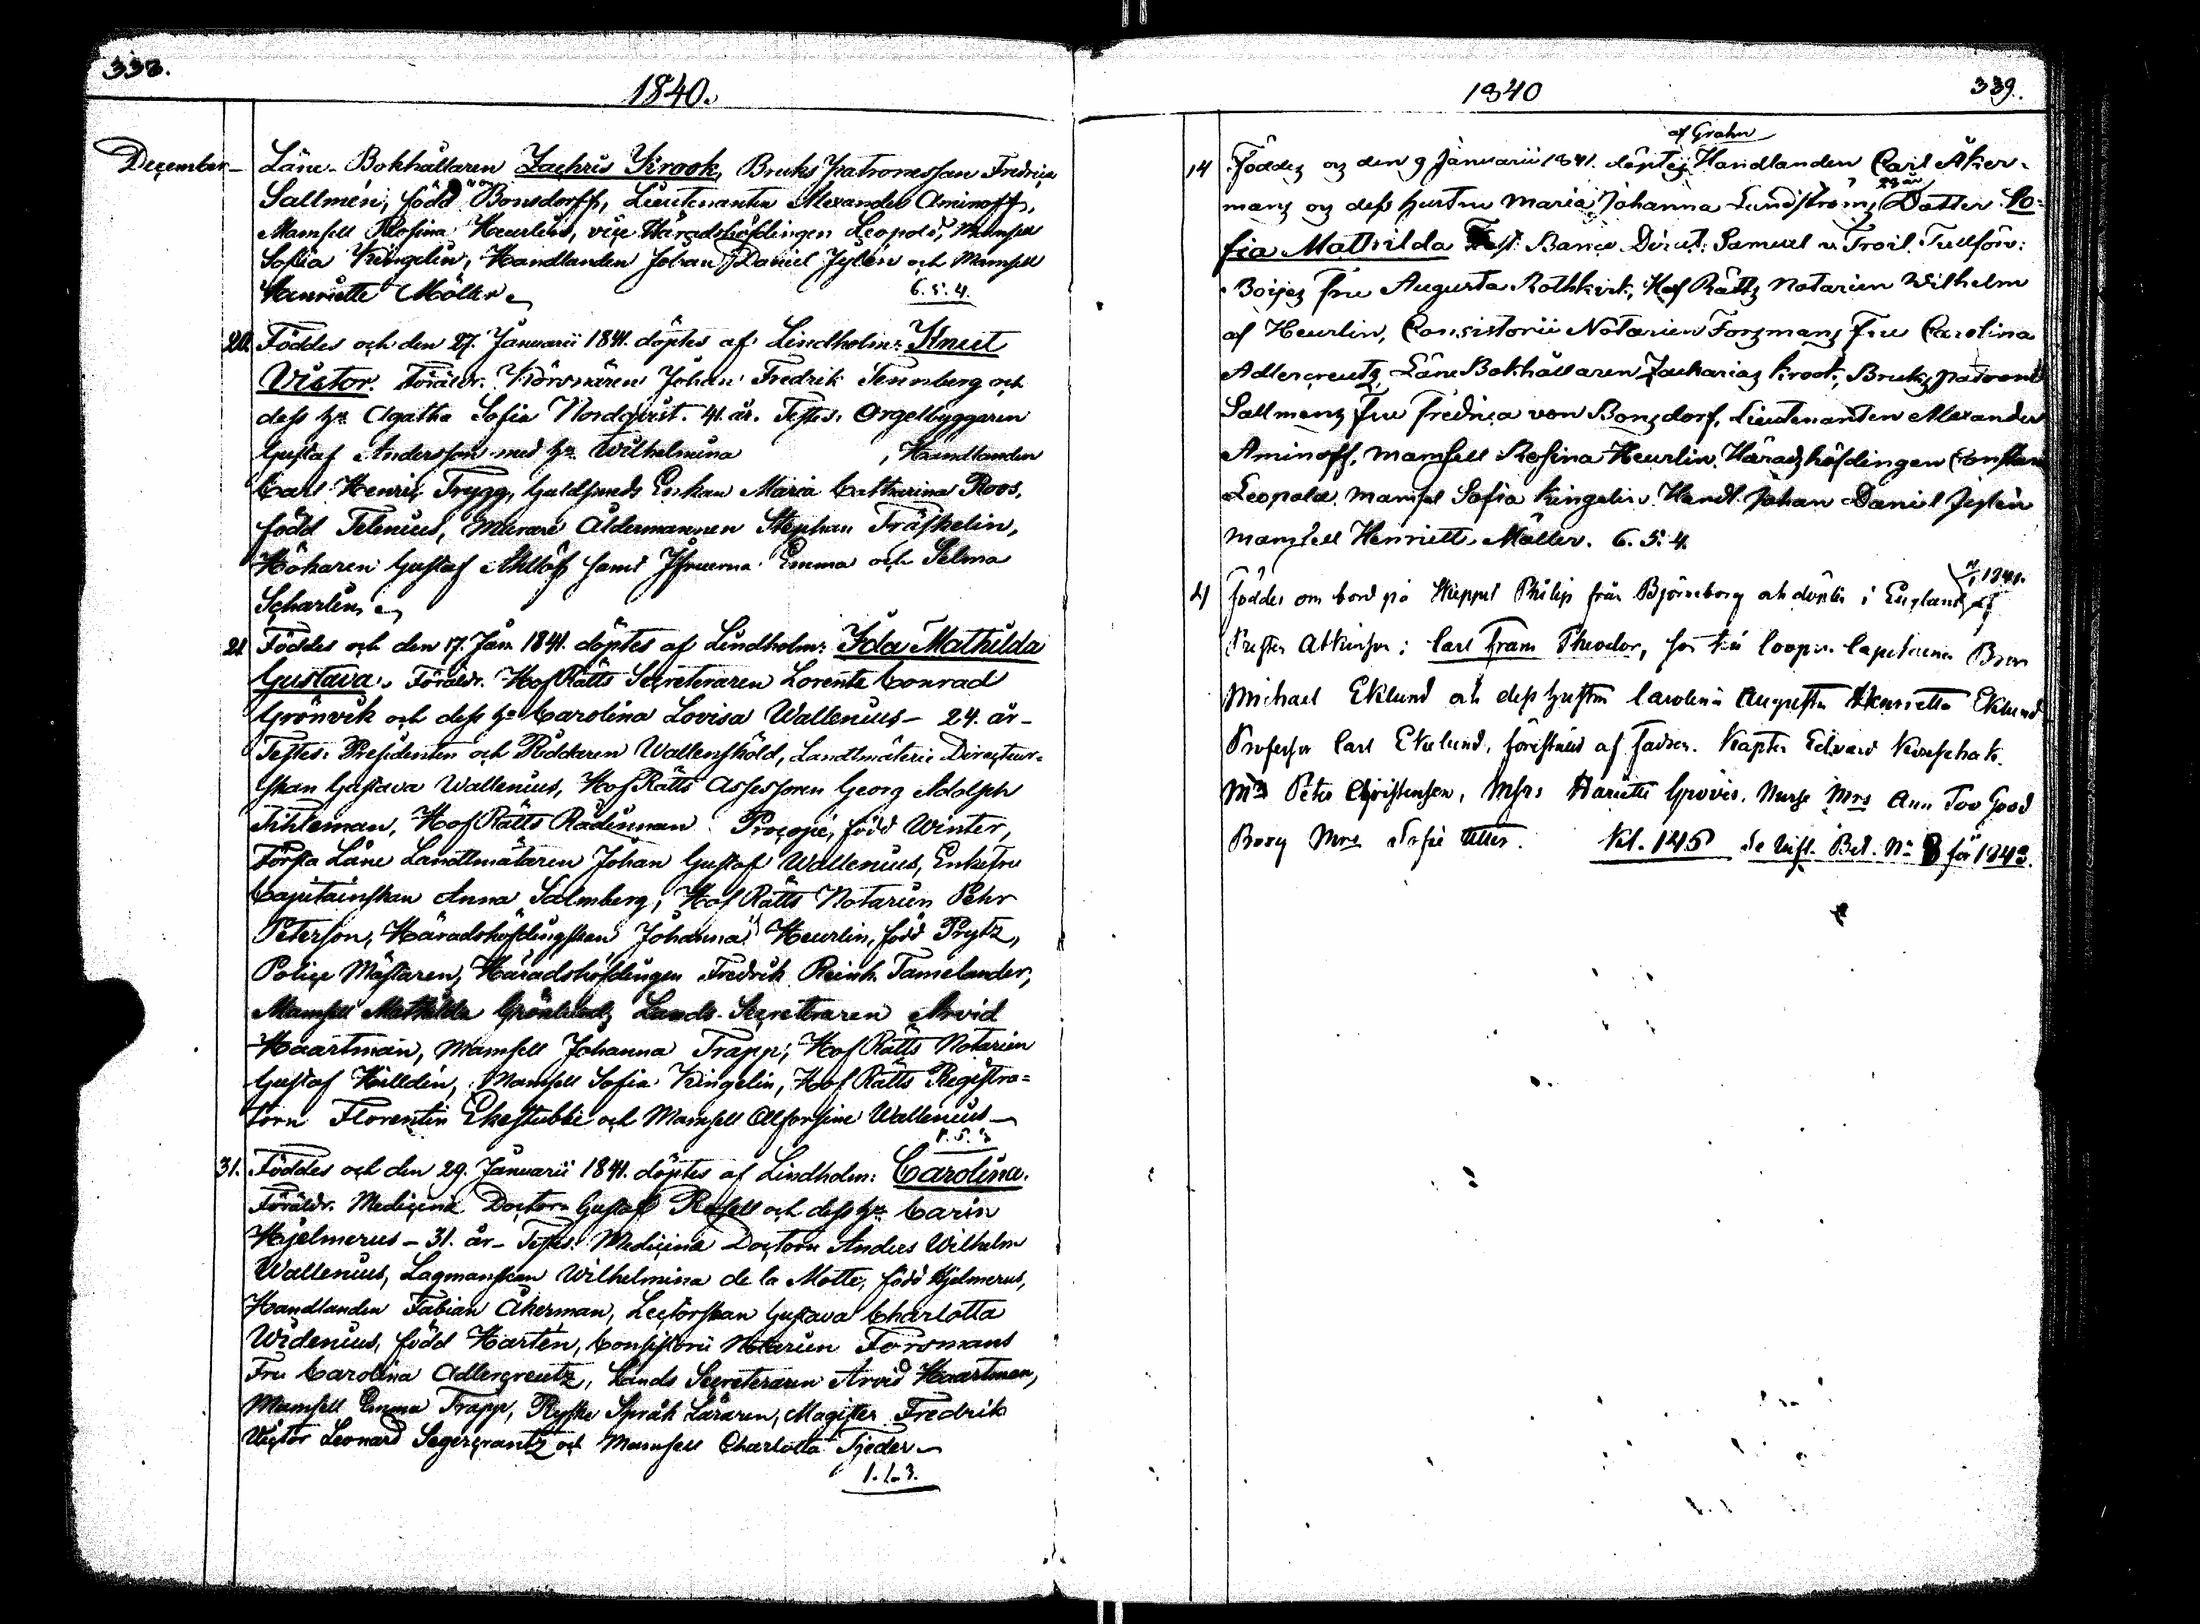 338.
1840.
December
Läne-Bokhållaren Zachris Krook, Bruks Patronessan Fredrica
Sallmén, född Bonsdorff, Lieutenanten Alexander Aminoff,
Mamsell Rosina Heurlin, vice Häradshöfdingen Leopold, Mamsell
Sofia Kingelin, Handlanden Johan Daniel Jylén och Mamsell
Henriette Möller
6. 5. 4.
20. Föddes och den 27. Januarii 1841. döptes af Lindholm: Knut
Victor. Föräldr. Johan Fredrik Tennberg och
dess h:u Agatha Sofia Nordqvist. 41. år. Testes: Orgelbyggaren
Gustaf Andersson med h:u Wilhelmina , Handlanden
Carl Henric Trygg, Guldsmeds Enkan Maria Catharina Roos,
född Telenius, Murare Åldermannen Stephan Träskelin,
Hökaren Gustaf Ahllöf samt Jfruerna Emma och Selma
Scharlin
21. Föddes och den 17. Jan. 1841. döptes af Lindholm: Ida Mathilda
Gustava. Föräldr. HofRätts Secreteraren Lorentz Conrad
Grönvik och dess h:u Carolina Lovisa Wallenius – 24. år –
Testes: Presidenten och Riddaren Wallensköld, Landtmäterie Directeur-
skan Gustava Wallenius, HofRätts Assessoren Georg Adolph
Fihleman, HofRätts Rådinnan Procopé, född Winter,
Första Läne Landtmätaren Johan Gustaf Wallenius, Enkefru
Capitainskan Anna Salmberg, Hof Rätts Notarien Pehr
Peterson, Häradshöfdingskan Johanna Heurlin, född Prytz,
Police Mästaren, Häradshöfdingen Fredrik Reinh. Tamelander,
Mamsell Mathilda Grönlund, Lands-Secreteraren Arvid
Haartman, Mamsell Johanna Trapp, Hof Rätts Notarien
Gustaf Killdin, Mamsell Sofia Kingelin, Hof Rätts Registra-
torn Florentin Ekestubbe och Mamsell Alfonsine Wallenius
31. Föddes och den 29. Januarii 1841. döptes af Lindholm: Carolina.
Föräldr. Medicina Doctorn Gustaf och dess h:u Carin
Hjelmerus – 31. år – Testes: Medicina Doctorn Anders Wilhelm
Wallenius, Lagmanskan Wilhelmina de la Motte, född Hjelmerus,
Handlanden Fabian Åkerman, Lectorskan Gustava Charlotta
Widenius, född Harten, Consistorii Notarien Forsmans
Fru Carolina Adlercreutz, Lands Secreteraren Arvid Haartman,
Mamsell Emma Trapp, Ryske Språk Läraren, Magister Fredrik
Victor Leonard Segercrantz och Mamsell Charlotta Tjeder
1840
339.
af Grahn
14 Föddes og den 9 Januarii 1841. döptes Handlanden Carl Åker-
23 år
mans og dess hustru Maria Johanna Lundströms Dotter So-
fia Mathilda Test: Banco Direct: Samuel v. Troil. Tullförv:
Boijes fru Augusta Rothkirk, Hof Rätts Notarien Wilhelm
af Heurlin, Consistorii Notarien Forsmans fru Carolina
Adlercreutz, Läne Bokhållaren Zacharias Krook, Bruks patron
Sallmens fru Fredrica von Bonsdorf, Lieutenanten Alexander
Aminoff, Mamsell Rosina Heurlin, Häradshöfdingen
Leopold, Mamsel Sofia Kingelin, Handl. Johan Daniel Jylén
Mamsell Henriette Möller. 6. 5. 4.
1841.
21 Föddes om bord på Skeppet Philip från Björneborg och döptes i England af
Atkinson: Carl Frans Theodor,
Michael Eklund och dess hustru Carolina Augusta Henrietta Eklund
Professor Carl Eklund, af fadren. Kapten Edvard
Mrs Peter Christensen, Harietta Nurse Mrs Ann Too Good
Borg Mrs Sofie
1843.